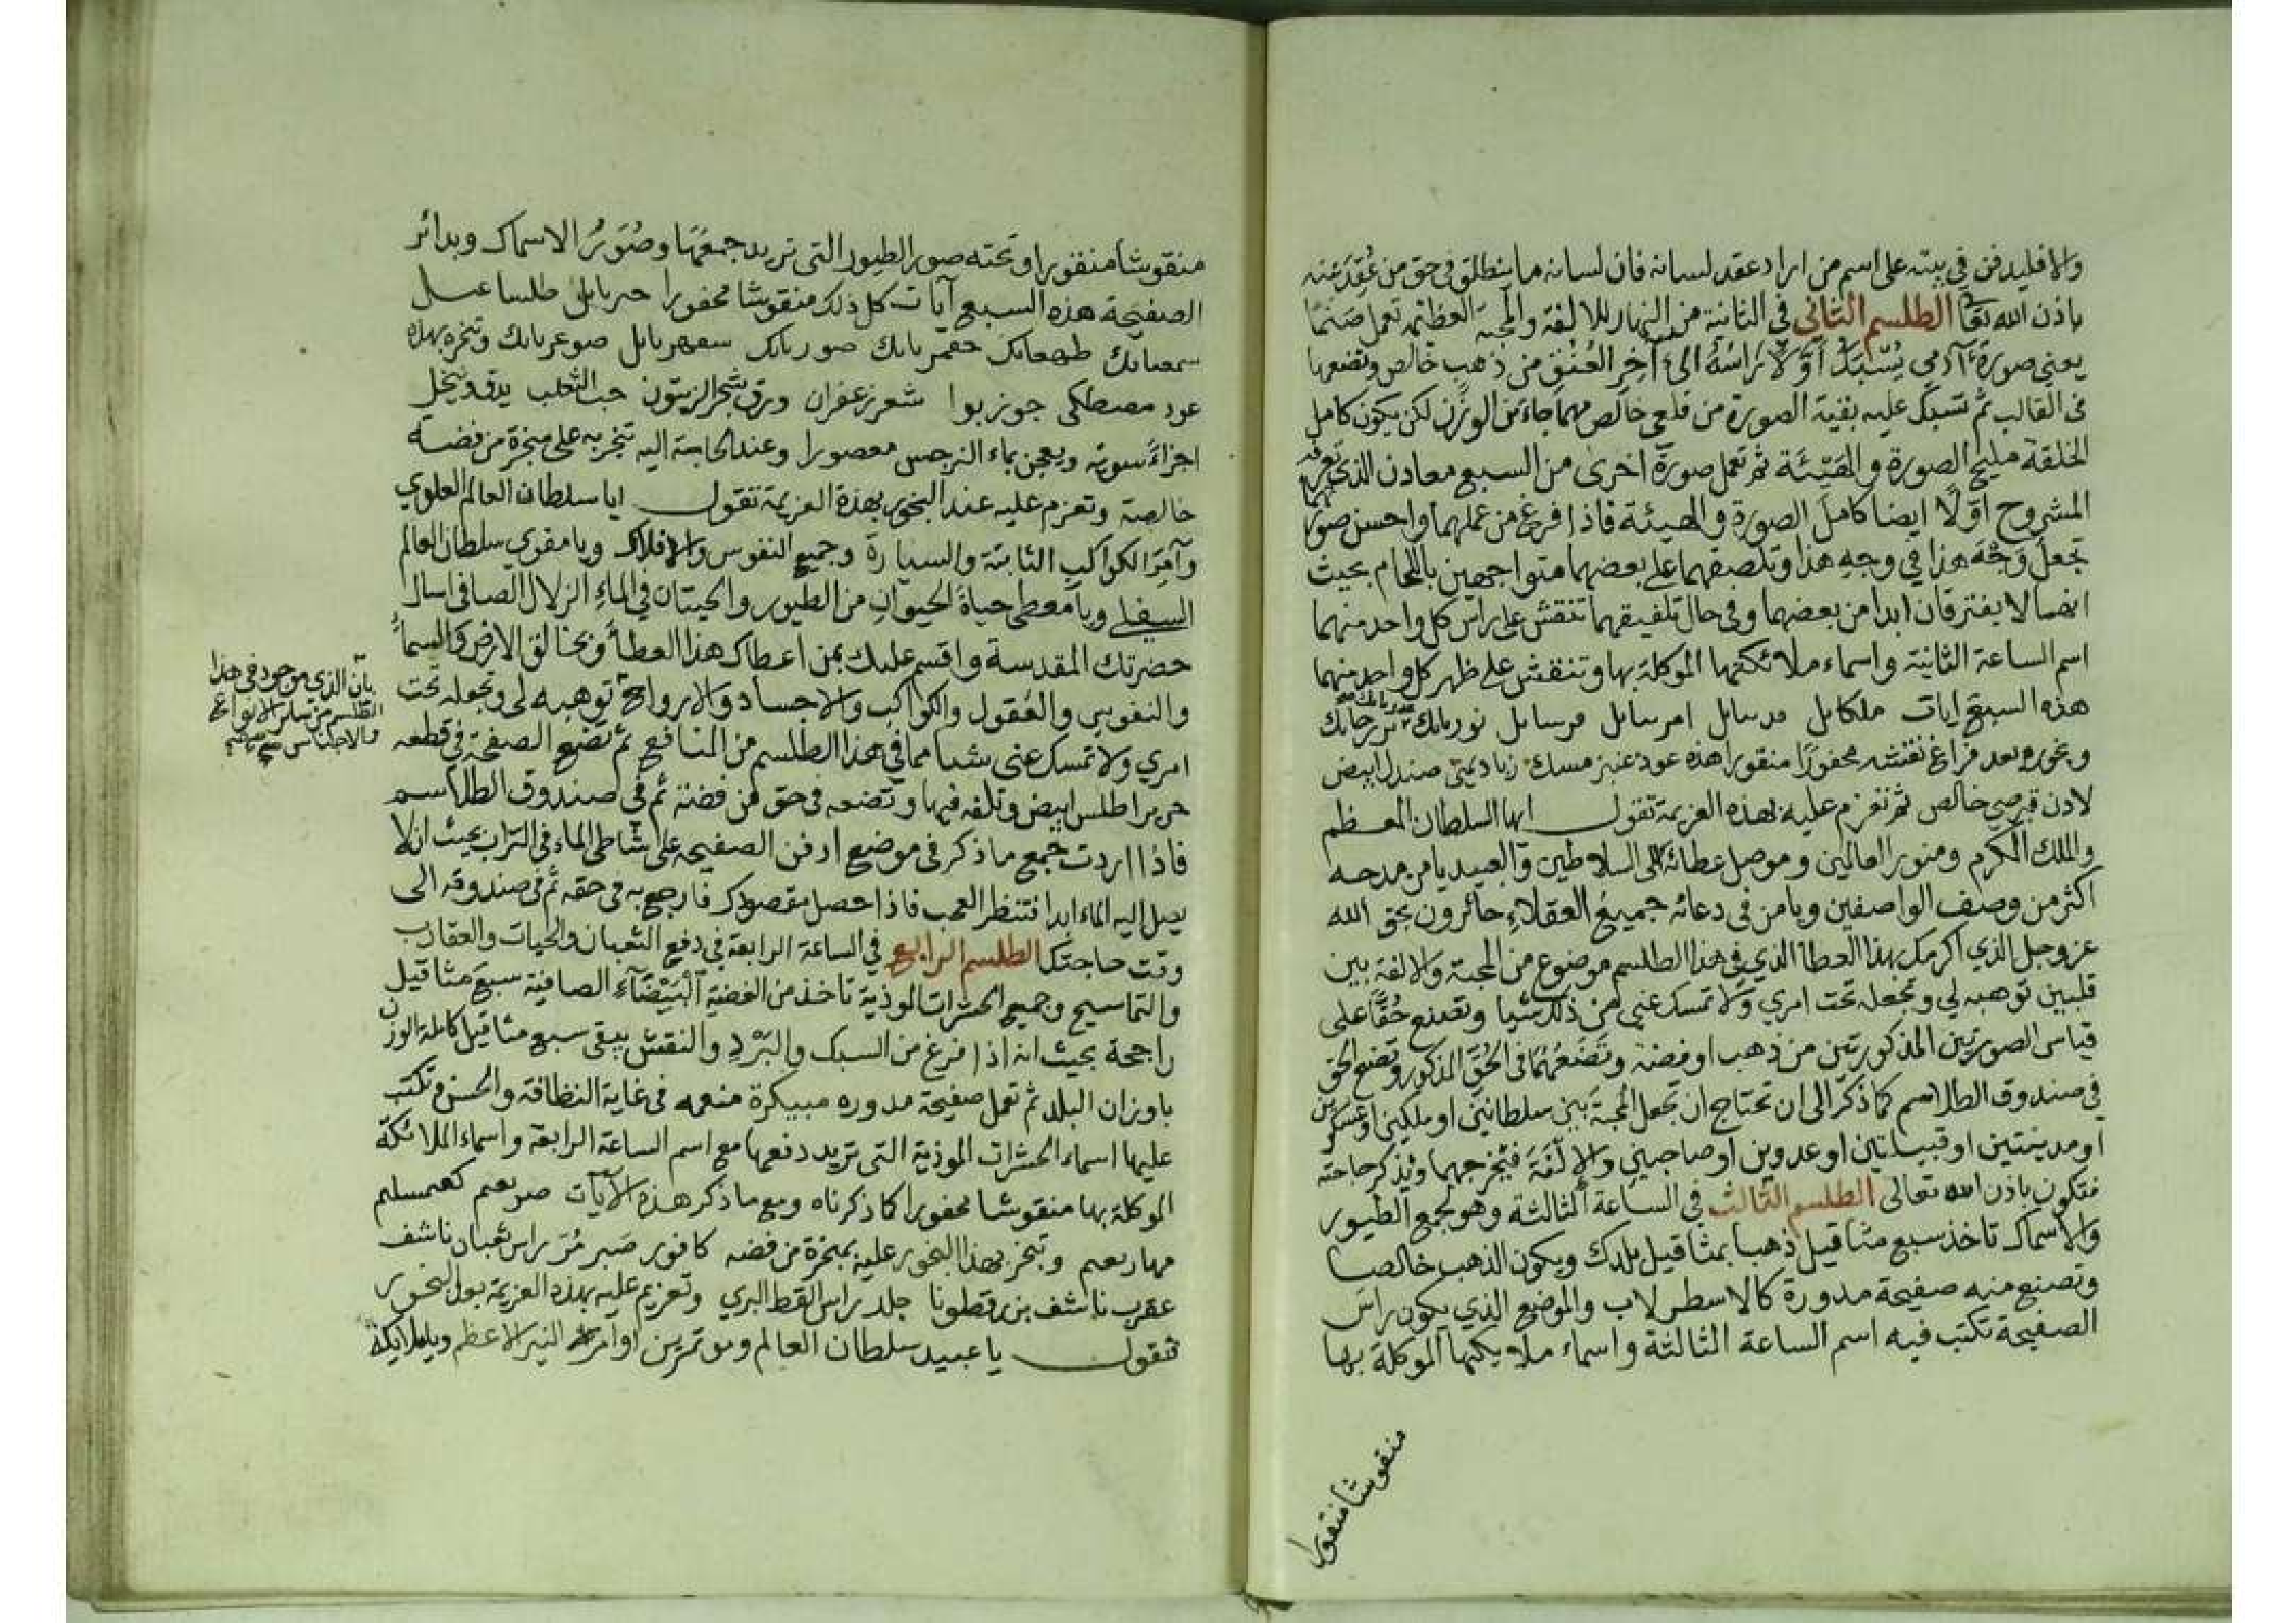 والا فليدفن في بيته على اسم من اراد عقد لسانه فان لسانه ما ينطلق في حق من عُقِدَ عنه
باذن الله تعا الطلسم الثاني في الثانية من النهار للالفة والمحبة العظائم تعمل صَنمًا
يعني صورة آدمي يُسْبَكُ اَوَّلًا رَاسُهُ الى آخِرِ العُنُق من ذهب خالص وتضعها
في القالب ثم تسبك عليه بقية الصورة من قلعي خالص مهما جاء من الوزن لكن يكون كامل
الخلقة مليح الصورة والهَيْئَة ثم تعمل صورة اخرى من السبع معادن الذي
المشروح اوّلًا ايضا كامل الصورة والهيئة فاذا فرغ من عملهما واحسن
تجعل وَجْهَ هذا في وجهِ هذا وتلصقهما على بعضهما متواجهين باللحام بحيث
انهما لا يفترقان ابدا من بعضهما وفي حال تلفيقهما تنقش على راس كل واحد منهما
اسم الساعة الثانية واسماء ملائكتها الموكلة بها وتنقش على ظهر كل واحد منهما
هذه السبع ايات ملكايل امرسايل مرسايل
وبخوره بعد فراغ نقشه محفورًا منقورا هذه عود عنبر مسك زباد صندل ابيض
لادن قبرصي خالص ثم تعزم عليه بهذه العزيمة تقول ايها السلطان المعظم
والملك المكرم ومنور العالمين وموصل عطائه الى السلاطين والعبيد يا من مدحه
اكثر من وصف الواصفين ويا من في دعائه جميع العقلاءِ حائرون بحق الله
عز وجل الذي اكرمك بهذا العطا الذي في هذا الطلسم موضوع من المحبة والالفة بين
قلبين توهبه لي وتجعله تحت امري ولا تمسك عني من ذلك شيا وتصنع حُقًّا على
قياس الصورتين المذكورتين من ذهب او فضة وتَضَعْهُمَا في الحُقِّ المذكور وتضع الحق
في صندوق الطلاسم كما ذكر الى ان تحتاج ان تجعل المحبة بين سلطانين او ملكين او عسكرين
او مدينتين او قبيلتين او عدوين او صاحبين والالفة فتخرجهما وتذكر حاجته
فتكون باذن الله تعالى الطلسم الثالث في الساعة الثالثة وهو لجمع الطيور
والاسماك تاخذ سبع مثاقيل ذهبا بمثاقيل بلدك ويكون الذهب خالصا
وتصنع منه صفيحة مدورة كالاسطرلاب والموضع الذي يكون راس
الصفيحة تكتب فيه اسم الساعة الثالثة واسماء ملايكتها الموكلة بها
منقوشا منقورا
منقوشا منقورا وتحته صور الطيور التي تريد جمعها وصُوَرُ الاسماك وبدائر
الصفيحة هذه السبع آيات كل ذلك منقوشا محفورا
وتبخره بهذه
عود مصطكى جوزبوا شعر زعفران ورق شجر الزيتون حب الثعلب يدق وينخل
اجزاءً سوية ويعجن بماء النرجس معصورا وعند الحاجة اليه تبخر به على مبخرة من فضة
خالصة وتعزم عليه عند البخور بهذه العزيمة تقول ايا سلطان العالم العلوي
وآمِرَ الكواكب الثابتة والسيارة وجميع النفوس والافلاك ويا مقوي سلطان العالم
السفلي ويا معطي حياة الحيوان من الطيور والحيتان في الماءِ الزلال الصافي اسال
حضرتك المقدسة واقسم عليك بمن اعطاك هذا العطأ وبخالق الارض والسمآ
والنفوس والعُقول والكواكب والاجساد والارواح توهبه لي وتجعله تحت
امري ولا تمسك عني شيا مما في هذا الطلسم من المنافع ثم تضع الصفحة في قطعه
بان الذي موجود في هذا
الطلسم من سائر الانواع
والاجناس صح
حرير اطلس ابيض وتلفه فيها وتضعه في حق من فضة ثم في صندوق الطلاسم
فاذا اردت جمع ما ذكر في موضع ادفن الصفيحه على شاطي الماء في التراب بحيث ان لا
يصل اليه الماء ابدا فتنظر العجب فاذا حصل مقصودك فارجع به في حقه ثم في صندوقه الى
وقت حاجتك الطلسم الرابع في الساعة الرابعة في دفع الثعبان والحيات والعقارب
والتماسيح وجميع الحشرات الموذية تاخذ من الفضية البَيْضَآءِ الصافية سبع مثاقيل
راجحة بحيث انه اذا فرغ من السبك والبَرْدِ والنقش يبقى سبع مثاقيل كاملة الوزن
باوزان البلد ثم تعمل صفيحة مدوره مبيكرة منعمه في غاية النظافة والحسن وتكتب
عليها اسماء الحشرات الموذية التي تريد دفعها مع اسم الساعة الرابعة واسماء الملائكة
الموكلة بها منقوشا محفورا كما ذكرناه ومع ما ذكر هذه الآيات
وتبخر بهذا البخور عليه بمبخرة من فضه كافور صَبِر مُرّ راس ثعبان ناشف
عقرب ناشف بزرقطونا جلد راس القط البري وتعزيم عليه بهذه العزيمة بول البخور
فتقول يا عبيد سلطان العالم النير الاعظم